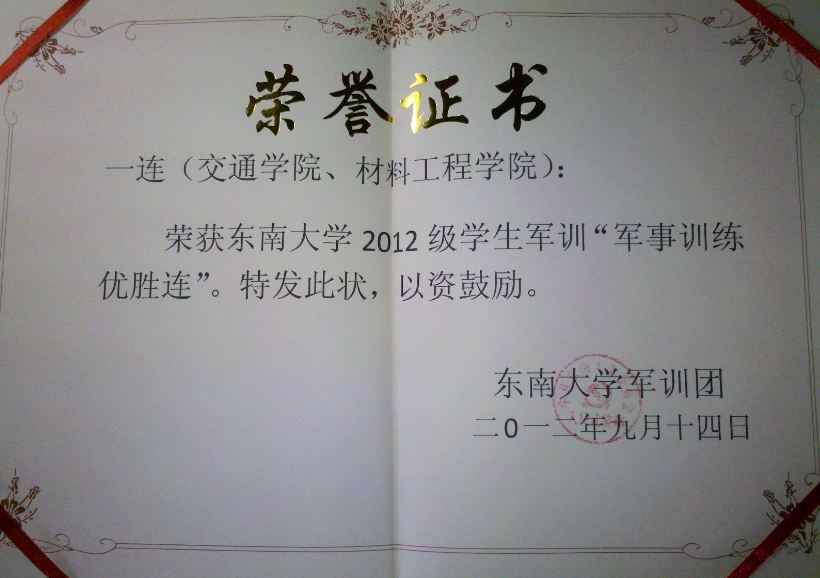 荣誉证书
一连（交通学院、材料工程学院）：
荣获东南大学 2012 级学生军训“军事训练
优胜连”。特发此状，以资鼓励。
东南大学军训团
二0一二年九月十四日